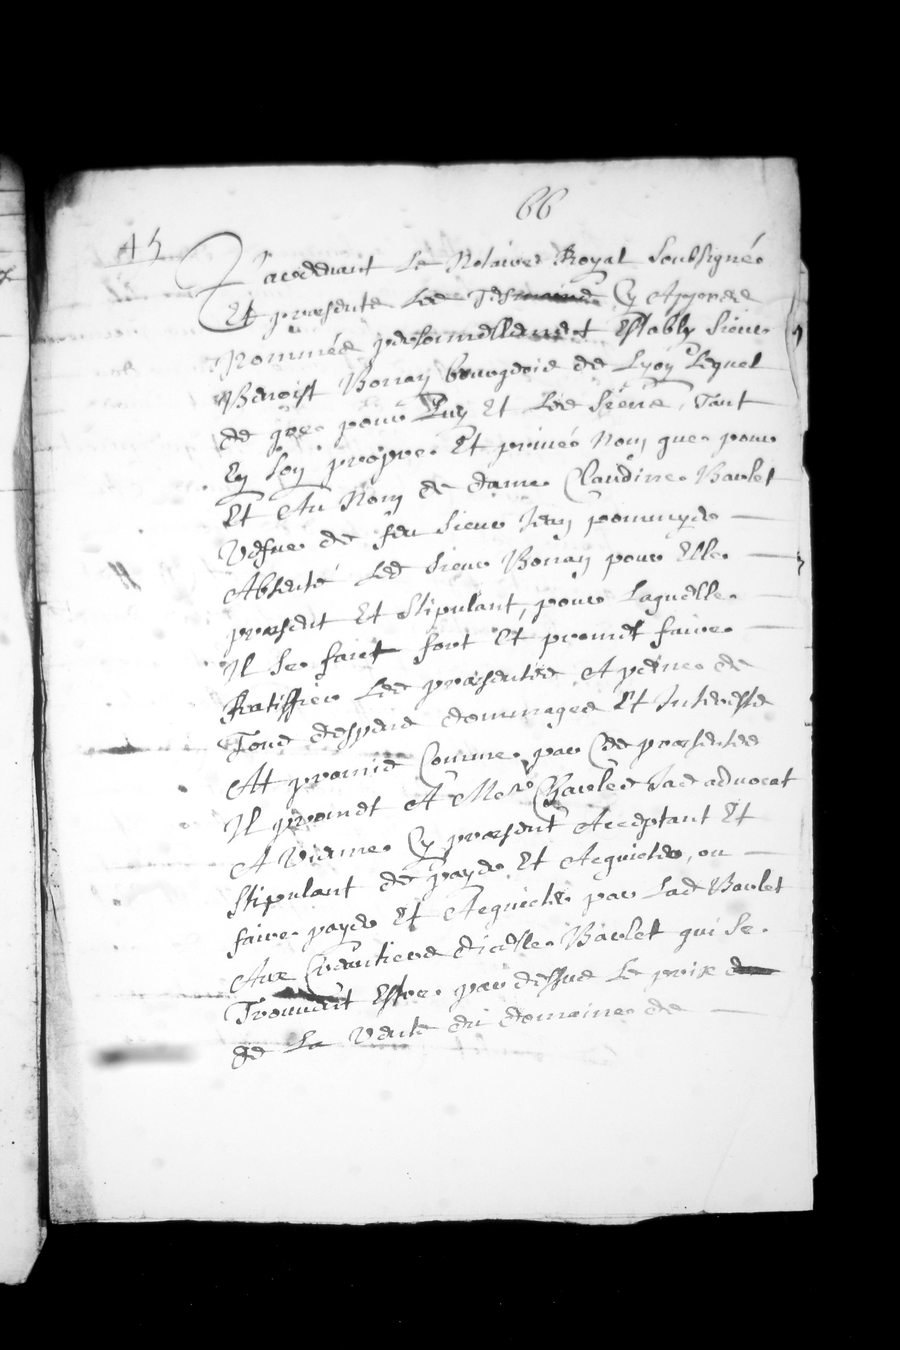 66
45
Pardevant Le Notaire Royal Soubsigné
Et presents Les Tesmoins Cy Appres
Nommés personnellement Estably Sieur
Benoist Bonay bourgeois de Lyon Lequel
de gre pour Luy Et Les Siens, Tant
En Son propre Et privé Nom que pour
Et Au Nom de dame Claudine Barlet
Vefve de feu Sieur Jean
Absente Led Sieur Bonay pour Elle
present Et Stipulant, pour Laquelle
Il Se faict fort Et promet faire
Ratiffier Les presentes A peine de
Tous despens dommages Et Interests
At promis Comme par Ces presentes
Il promet A Me Charles advocat
A Vienne Cy present Acceptant Et
Stipulant de payer Et Acquicter, ou
faire payer Et Acquicter par Lad Barlet
Aux Creantiers dicelle Barlet qui Se
Trouveront Estre par dessus Le prix
de La Vente du domaine de